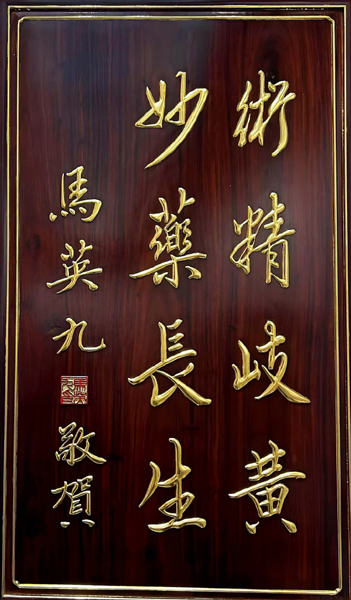 術精岐黃
妙藥長生
馬英九
敬賀